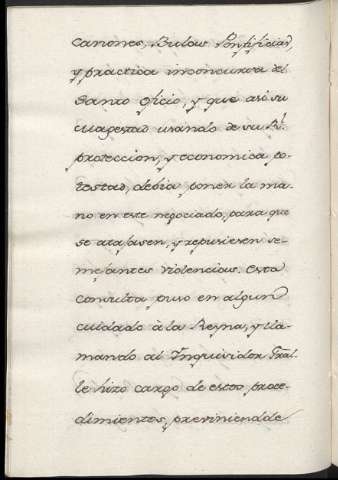 canones, Bulas Pontificias,
y practica inconcusa del
Santo Oficio, y que asi su
Magestad usando de su Rl.
proteccion, y economica po-
testad, debia poner la ma-
no en este negociado, para que
se atajasen, y repusiesen se-
mejantes violencias. Esta
consulta puso en algun
cuidado à la Reyna, y lla-
mando al Inquisidor Gral.
le hizo cargo de estos proce-
dimientos, previniendole